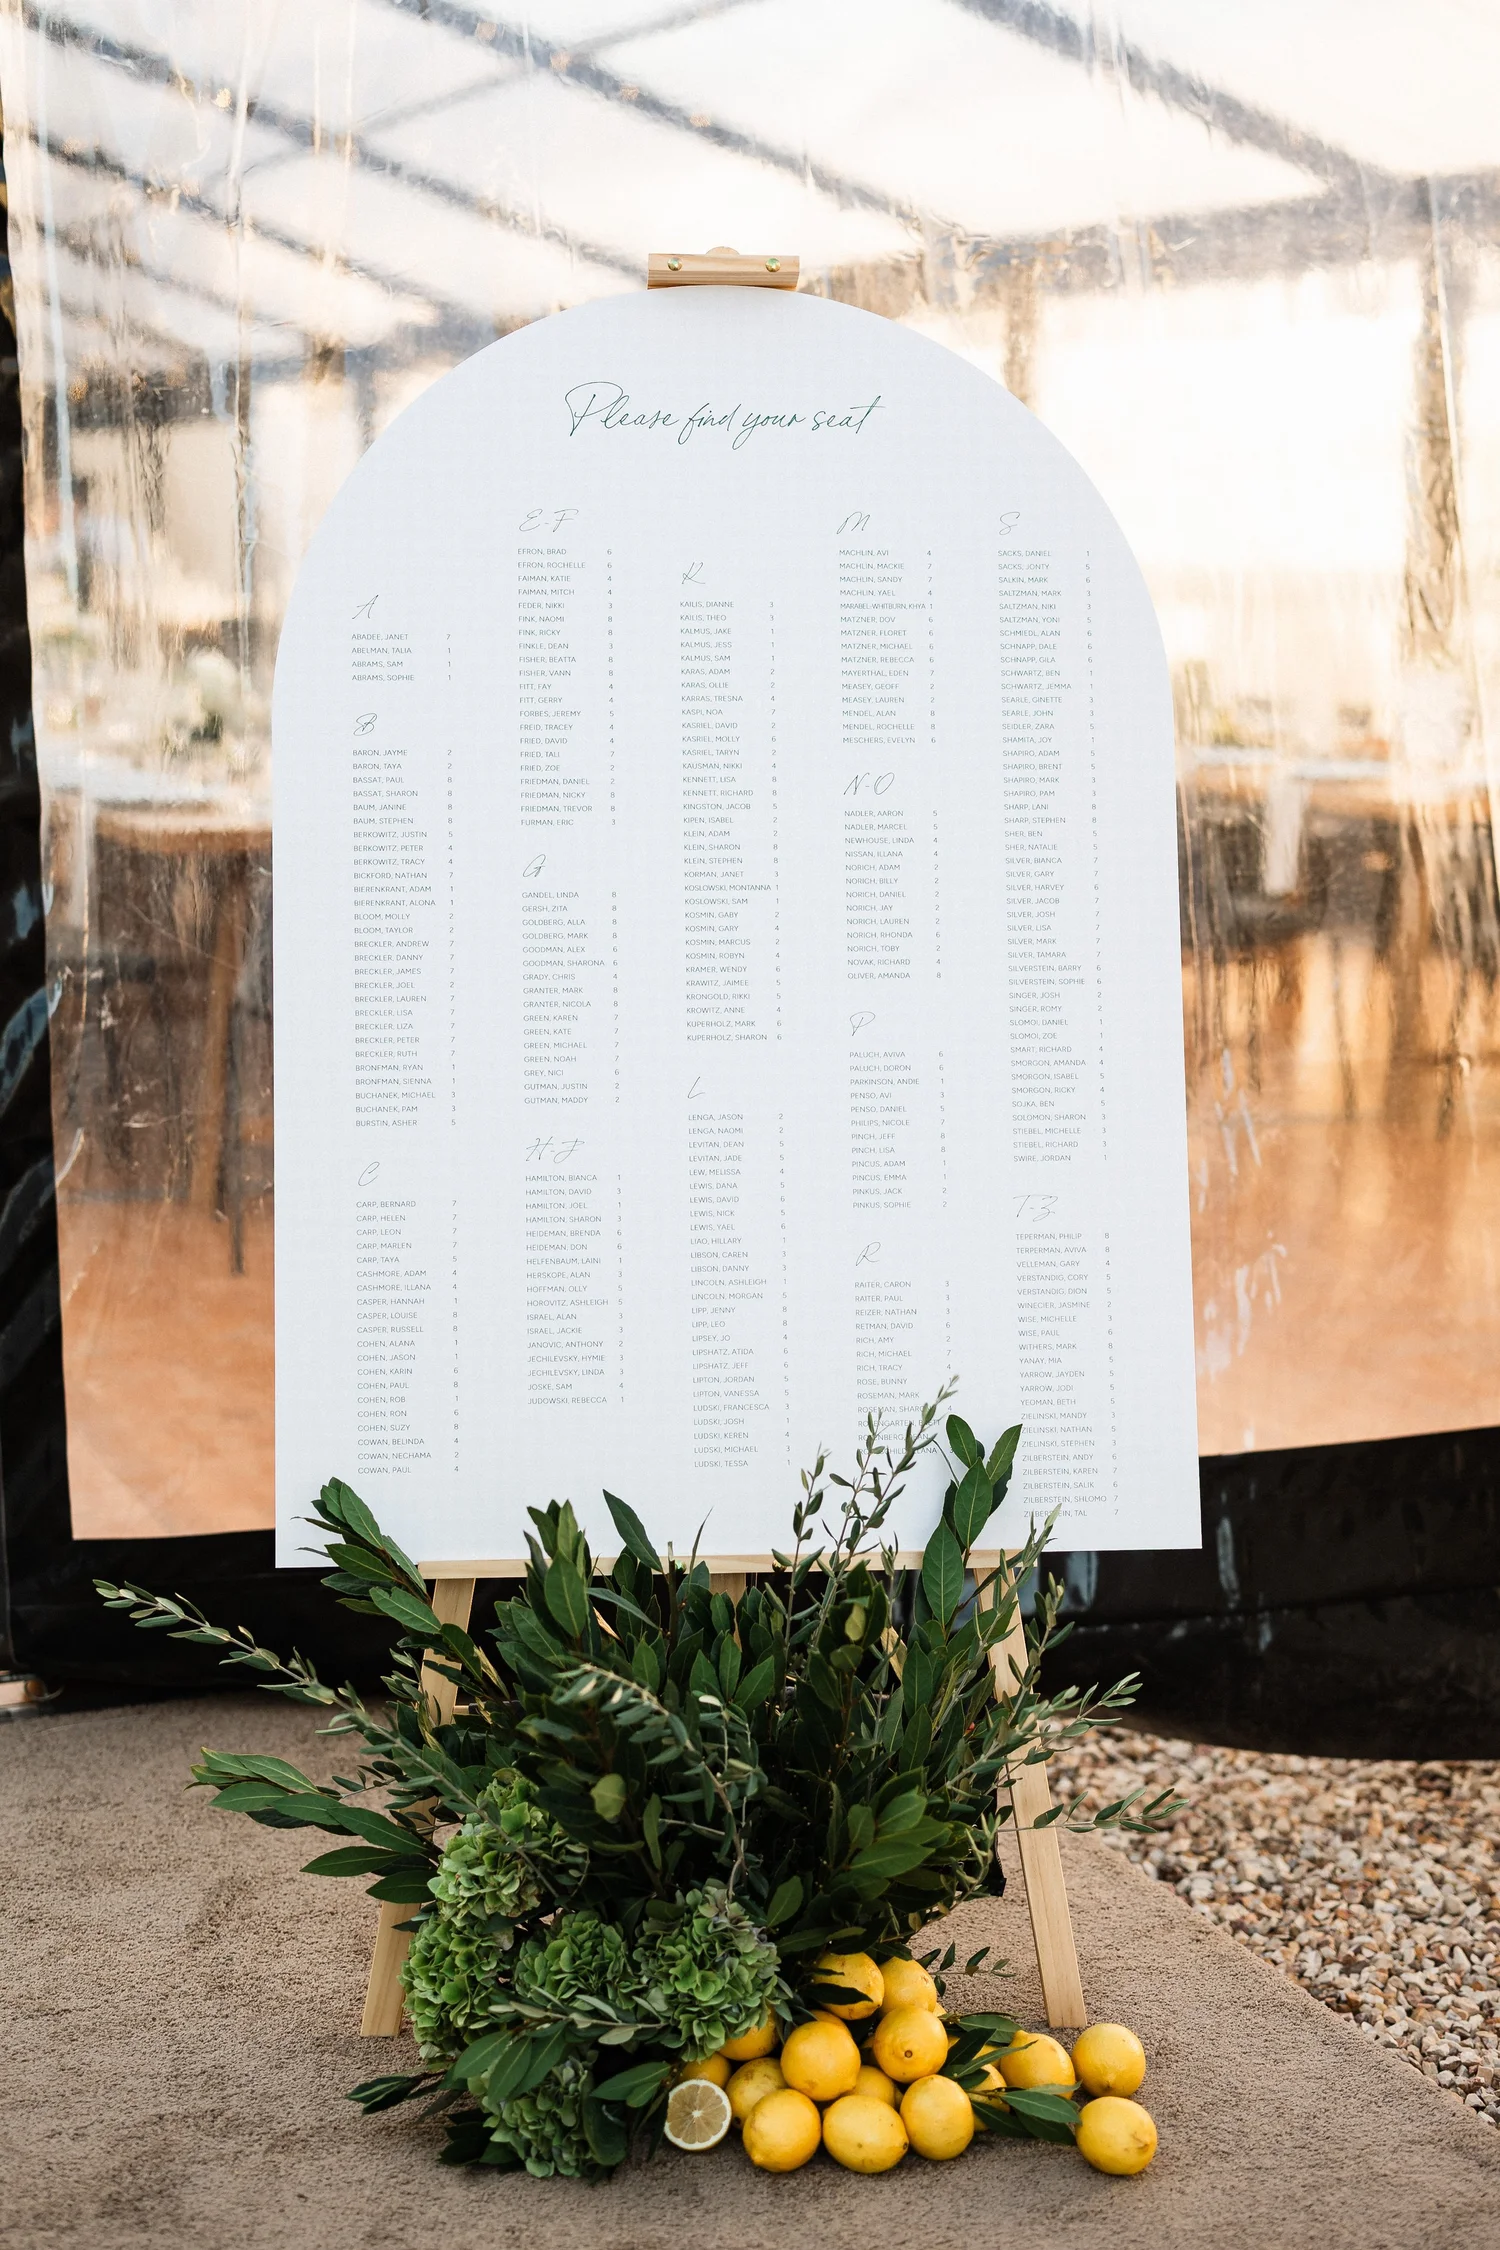 Please find your seat
A
ABADEE, JANET 7
ABELMAN, TALIA 1
ABRAMS, SAM 1
ABRAMS, SOPHIE 1
B
BARON, JAYME 2
BARON, TAYA 2
BASSAT, PAUL 8
BASSAT, SHARON 8
BAUM, JANINE 8
BAUM, STEPHEN 8
BERKOWITZ, JUSTIN 5
BERKOWITZ, PETER 4
BERKOWITZ, TRACY 4
BICKFORD, NATHAN 7
BIERENKRANT, ADAM 1
BIERENKRANT, ALONA 1
BLOOM, MOLLY 2
BLOOM, TAYLOR 2
BRECKLER, ANDREW 7
BRECKLER, DANNY 7
BRECKLER, JAMES 7
BRECKLER, JOEL 2
BRECKLER, LAUREN 7
BRECKLER, LISA 7
BRECKLER, LIZA 7
BRECKLER, PETER 7
BRECKLER, RUTH 7
BRONFMAN, RYAN 1
BRONFMAN, SIENNA 1
BUCHANEK, MICHAEL 3
BUCHANEK, PAM 3
BURSTIN, ASHER 5
C
CARP, BERNARD 7
CARP, HELEN 7
CARP, LEON 7
CARP, MARLEN 7
CARP, TAYA 5
CASHMORE, ADAM 4
CASHMORE, ILLANA 4
CASPER, HANNAH 1
CASPER, LOUISE 8
CASPER, RUSSELL 8
COHEN, ALANA 1
COHEN, JASON 1
COHEN, KARIN 6
COHEN, PAUL 8
COHEN, ROB 1
COHEN, RON 6
COHEN, SUZY 8
COWAN, BELINDA 4
COWAN, NECHAMA 2
COWAN, PAUL 4
E-F
EFRON, BRAD 6
EFRON, ROCHELLE 6
FAIMAN, KATIE 4
FAIMAN, MITCH 4
FEDER, NIKKI 3
FINK, NAOMI 8
FINK, RICKY 8
FINKLE, DEAN 3
FISHER, BEATTA 8
FISHER, VANN 8
FITT, FAY 4
FITT, GERRY 4
FORBES, JEREMY 5
FREID, TRACEY 4
FRIED, DAVID 4
FRIED, TALI 7
FRIED, ZOE 2
FRIEDMAN, DANIEL 2
FRIEDMAN, NICKY 8
FRIEDMAN, TREVOR 8
FURMAN, ERIC 3
G
GANDEL, LINDA 8
GERSH, ZITA 8
GOLDBERG, ALLA 8
GOLDBERG, MARK 8
GOODMAN, ALEX 6
GOODMAN, SHARONA 6
GRADY, CHRIS 4
GRANTER, MARK 8
GRANTER, NICOLA 8
GREEN, KAREN 7
GREEN, KATE 7
GREEN, MICHAEL 7
GREEN, NOAH 7
GREY, NICI 6
GUTMAN, JUSTIN 2
GUTMAN, MADDY 2
H-J
HAMILTON, BIANCA 1
HAMILTON, DAVID 3
HAMILTON, JOEL 1
HAMILTON, SHARON 3
HEIDEMAN, BRENDA 6
HEIDEMAN, DON 6
HELFENBAUM, LAINI 1
HERSKOPE, ALAN 3
HOFFMAN, OLLY 5
HOROVITZ, ASHLEIGH 5
ISRAEL, ALAN 3
ISRAEL, JACKIE 3
JANOVIC, ANTHONY 2
JECHILEVSKY, HYMIE 3
JECHILEVSKY, LINDA 3
JOSKE, SAM 4
JUDOWSKI, REBECCA 1
K
KAILIS, DIANNE 3
KAILIS, THEO 3
KALMUS, JAKE 1
KALMUS, JESS 1
KALMUS, SAM 1
KARAS, ADAM 2
KARAS, OLLIE 2
KARRAS, TRESNA 4
KASPI, NOA 7
KASRIEL, DAVID 2
KASRIEL, MOLLY 6
KASRIEL, TARYN 2
KAUSMAN, NIKKI 4
KENNETT, LISA 8
KENNETT, RICHARD 8
KINGSTON, JACOB 5
KIPEN, ISABEL 2
KLEIN, ADAM 2
KLEIN, SHARON 8
KLEIN, STEPHEN 8
KORMAN, JANET 3
KOSLOWSKI, MONTANNA 1
KOSLOWSKI, SAM 1
KOSMIN, GABY 2
KOSMIN, GARY 4
KOSMIN, MARCUS 2
KOSMIN, ROBYN 4
KRAMER, WENDY 6
KRAWITZ, JAIMEE 5
KRONGOLD, RIKKI 5
KROWITZ, ANNE 4
KUPERHOLZ, MARK 6
KUPERHOLZ, SHARON 6
L
LENGA, JASON 2
LENGA, NAOMI 2
LEVITAN, DEAN 5
LEVITAN, JADE 5
LEW, MELISSA 4
LEWIS, DANA 5
LEWIS, DAVID 6
LEWIS, NICK 5
LEWIS, YAEL 6
LIAO, HILLARY 1
LIBSON, CAREN 3
LIBSON, DANNY 3
LINCOLN, ASHLEIGH 1
LINCOLN, MORGAN 5
LIPP, JENNY 8
LIPP, LEO 8
LIPSEY, JO 4
LIPSHATZ, ATIDA 6
LIPSHATZ, JEFF 6
LIPTON, JORDAN 5
LIPTON, VANESSA 5
LUDSKI, FRANCESCA 3
LUDSKI, JOSH 1
LUDSKI, KEREN 4
LUDSKI, MICHAEL 3
LUDSKI, TESSA 1
M
MACHLIN, AVI 4
MACHLIN, MACKIE 7
MACHLIN, SANDY 7
MACHLIN, YAEL 4
MARABEL-WHITBURN, KHYA 1
MATZNER, DOV 6
MATZNER, FLORET 6
MATZNER, MICHAEL 6
MATZNER, REBECCA 6
MAYERTHAL, EDEN 7
MEASEY, GEOFF 2
MEASEY, LAUREN 2
MENDEL, ALAN 8
MENDEL, ROCHELLE 8
MESCHERS, EVELYN 6
N-O
NADLER, AARON 5
NADLER, MARCEL 5
NEWHOUSE, LINDA 4
NISSAN, ILLANA 4
NORICH, ADAM 2
NORICH, BILLY 2
NORICH, DANIEL 2
NORICH, JAY 2
NORICH, LAUREN 2
NORICH, RHONDA 6
NORICH, TOBY 2
NOVAK, RICHARD 4
OLIVER, AMANDA 8
P
PALUCH, AVIVA 6
PALUCH, DORON 6
PARKINSON, ANDIE 1
PENSO, AVI 3
PENSO, DANIEL 5
PHILIPS, NICOLE 7
PINCH, JEFF 8
PINCH, LISA 8
PINCUS, ADAM 1
PINCUS, EMMA 1
PINKUS, JACK 2
PINKUS, SOPHIE 2
R
RAITER, CARON 3
RAITER, PAUL 3
REIZER, NATHAN 3
RETMAN, DAVID 6
RICH, AMY 2
RICH, MICHAEL 7
RICH, TRACY 4
ROSE, BUNNY
ROSEMAN, MARK
ROSEMAN, 4
S
SACKS, DANIEL 1
SACKS, JONTY 5
SALKIN, MARK 6
SALTZMAN, MARK 3
SALTZMAN, NIKI 3
SALTZMAN, YONI 5
SCHMIEDL, ALAN 6
SCHNAPP, DALE 6
SCHNAPP, GILA 6
SCHWARTZ, BEN 1
SCHWARTZ, JEMMA 1
SEARLE, GINETTE 3
SEARLE, JOHN 3
SEIDLER, ZARA 5
SHAMITA, JOY 1
SHAPIRO, ADAM 5
SHAPIRO, BRENT 5
SHAPIRO, MARK 3
SHAPIRO, PAM 3
SHARP, LANI 8
SHARP, STEPHEN 8
SHER, BEN 5
SHER, NATALIE 5
SILVER, BIANCA 7
SILVER, GARY 7
SILVER, HARVEY 6
SILVER, JACOB 7
SILVER, JOSH 7
SILVER, LISA 7
SILVER, MARK 7
SILVER, TAMARA 7
SILVERSTEIN, BARRY 6
SILVERSTEIN, SOPHIE 6
SINGER, JOSH 2
SINGER, ROMY 2
SLOMOI, DANIEL 1
SLOMOI, ZOE 1
SMART, RICHARD 4
SMORGON, AMANDA 4
SMORGON, ISABEL 5
SMORGON, RICKY 4
SOJKA, BEN 5
SOLOMON, SHARON 3
STIEBEL, MICHELLE 3
STIEBEL, RICHARD 3
SWIRE, JORDAN 1
T-Z
TEPERMAN, PHILIP 8
TERPERMAN, AVIVA 8
VELLEMAN, GARY 4
VERSTANDIG, CORY 5
VERSTANDIG, DION 5
WINECIER, JASMINE 2
WISE, MICHELLE 3
WISE, PAUL 6
WITHERS, MARK 8
YANAY, MIA 5
YARROW, JAYDEN 5
YARROW, JODI 5
YEOMAN, BETH 5
ZIELINSKI, MANDY 3
ZIELINSKI, NATHAN 5
ZIELINSKI, STEPHEN 3
ZILBERSTEIN, ANDY 6
ZILBERSTEIN, KAREN 7
ZILBERSTEIN, SALIK 6
ZILBERSTEIN, SHLOMO 7
ZILBERSTEIN, TAL 7